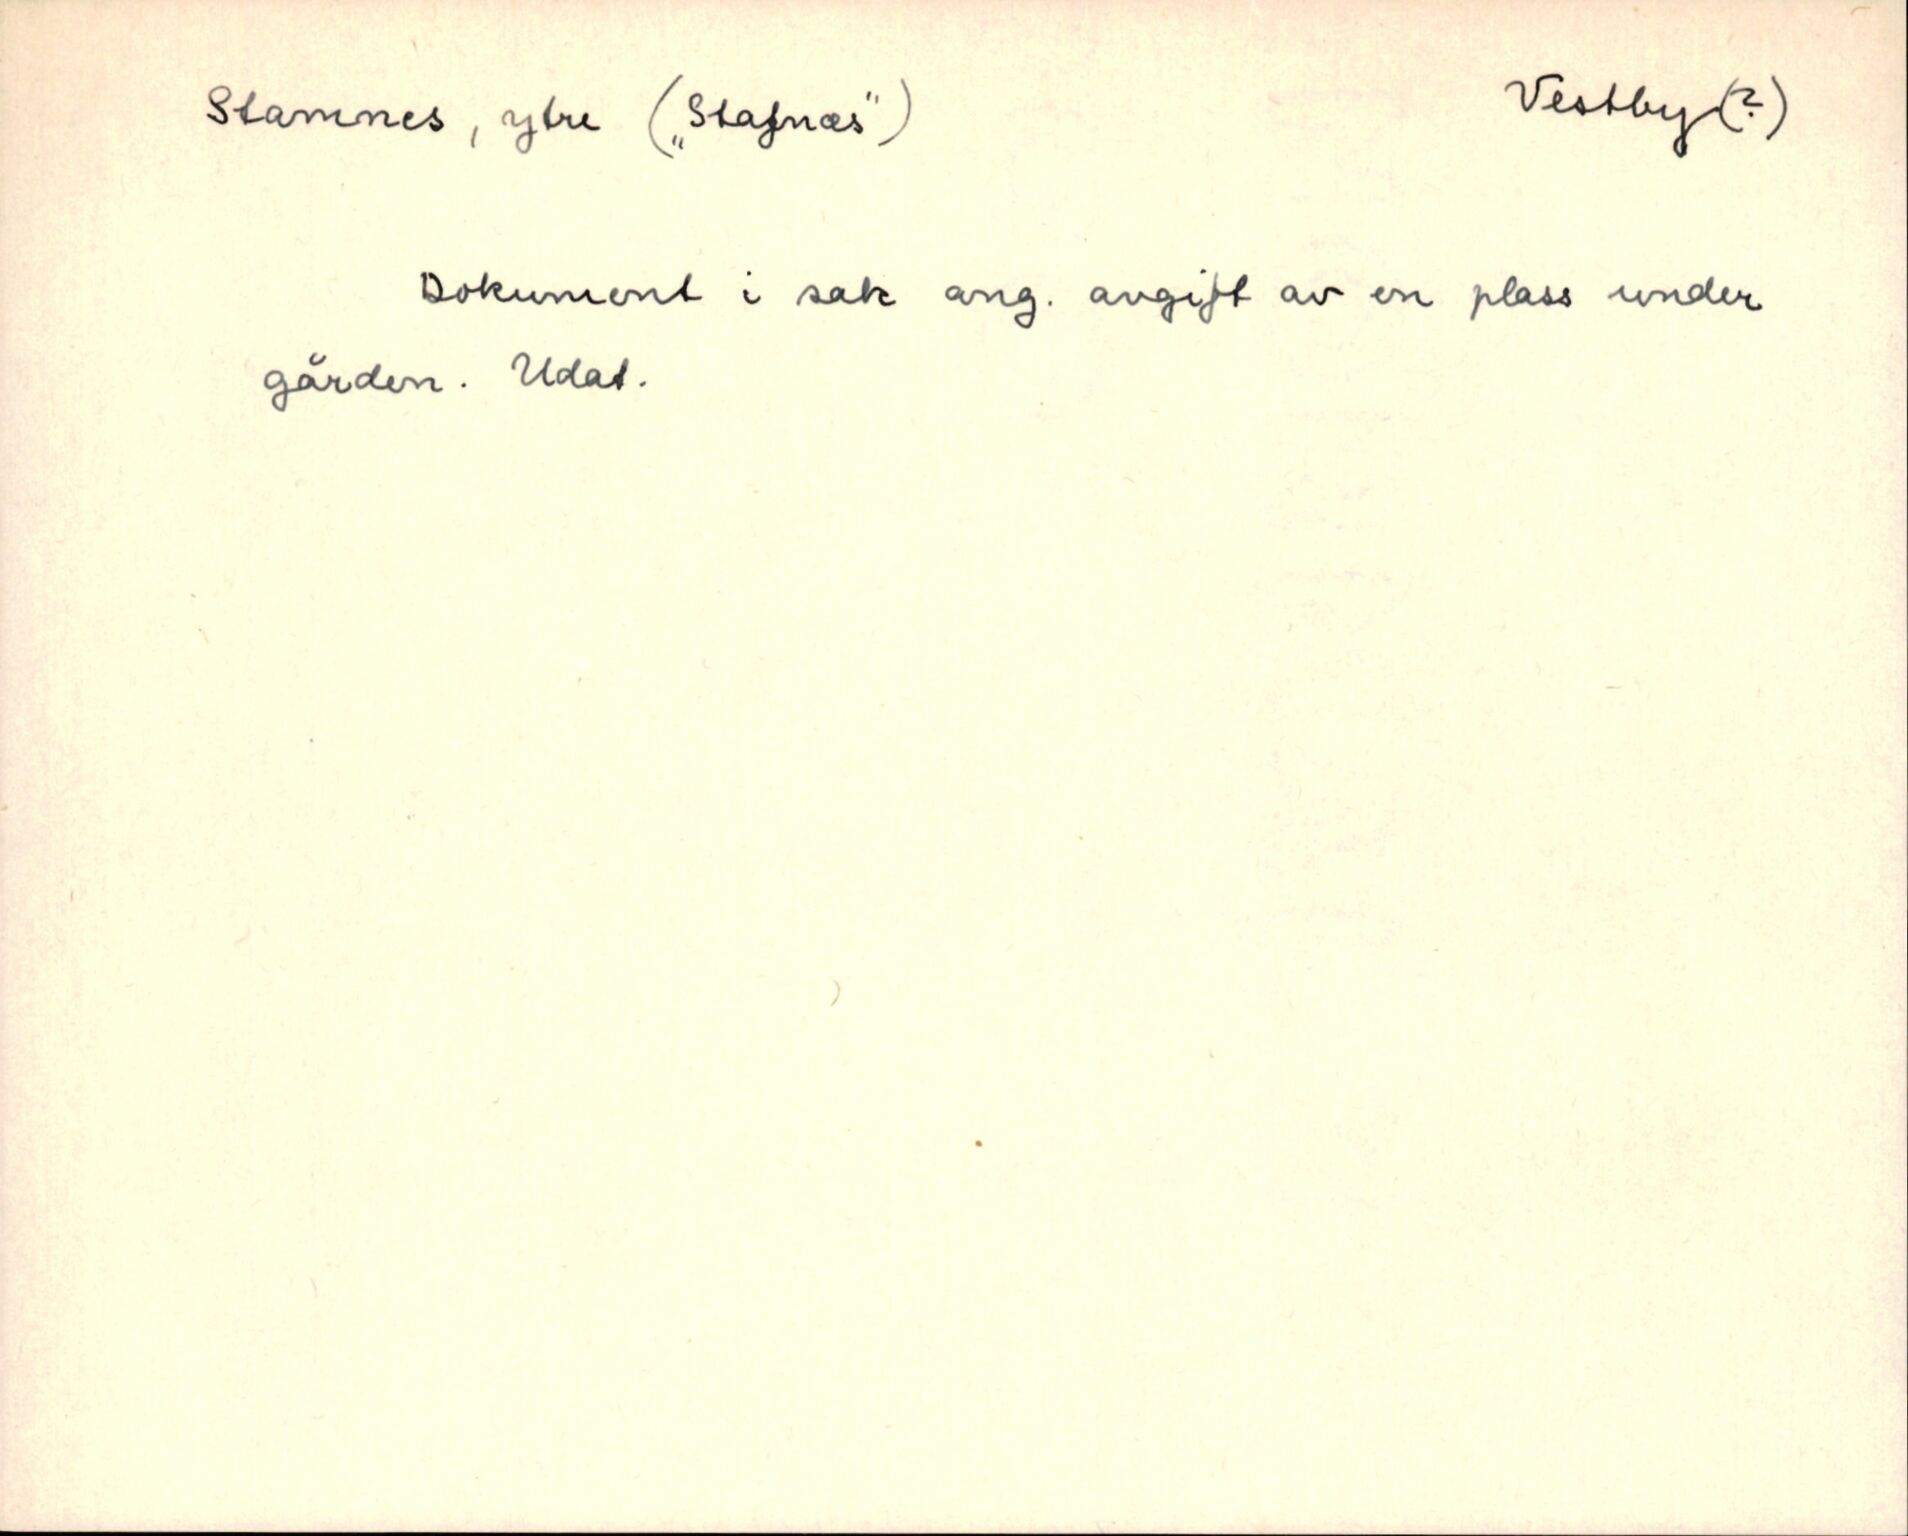 Stamnes, ytre („Stafnæs") Vestby(?)
Dokument i sak ang. avgift av en plass under
gården. Udat.